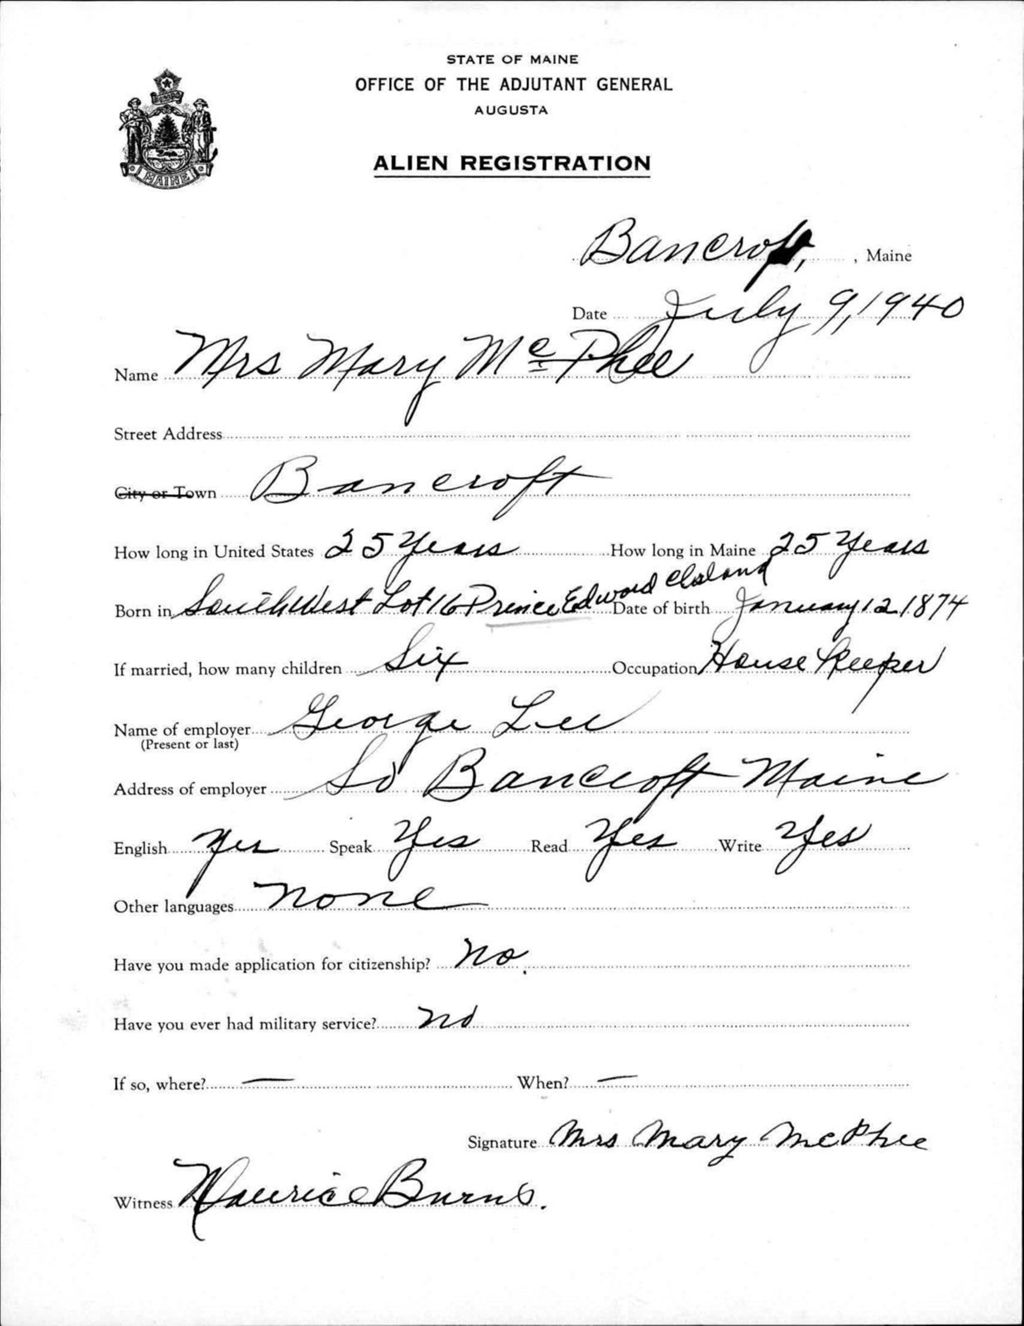 STATE OF MAINE
OFFICE OF THE ADJUTANT GENERAL
AUGUSTA
ALIEN REGISTRATION
MAINE
Bancroft, , Maine
Date July 9, 1940
Name Mrs Mary McPhee
Street Address
City or Town Bancroft
How long in United States 25 Years How long in Maine 25 Years
Born in South West Lot 16 Prince Edward Island Date of birth January 12 1874
If married, how many children Six Occupation House Keeper
Name of employer George Lee
(Present or last)
Address of employer So Bancroft Maine
English Yes Speak Yes Read Yes Write Yes
Other languages None
Have you made application for citizenship? No.
Have you ever had military service? No
If so, where? — When? —
Signature Mrs Mary McPhee
Witness Maurice Burns.